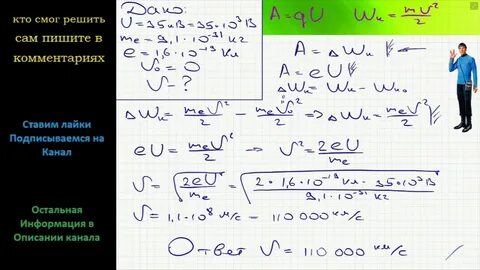 кто смог решить
сам пишите в
комментариях
Ставим лайки
Подписываемся на
Канал
Остальная
Информация в
Описании канала
Дано:
U = 35 кВ = 35·10³ В
mₑ = 9,1·10⁻³¹ кг
e = 1,6·10⁻¹⁹ Кл
V₀ = 0
V - ?
A = qU Wₖ = mV²/2
A = ΔWₖ
A = eU
ΔWₖ = Wₖ - Wₖ₀
ΔWₖ = mₑV²/2 - mₑV₀²/2 => ΔWₖ = mₑV²/2
eU = mₑV²/2 → V² = 2eU/mₑ
V = √(2eU/mₑ) = √(2·1,6·10⁻¹⁹ Кл·35·10³ В/9,1·10⁻³¹ кг)
V = 1,1·10⁸ м/с - 110 000 км/с
Ответ V = 110 000 км/с